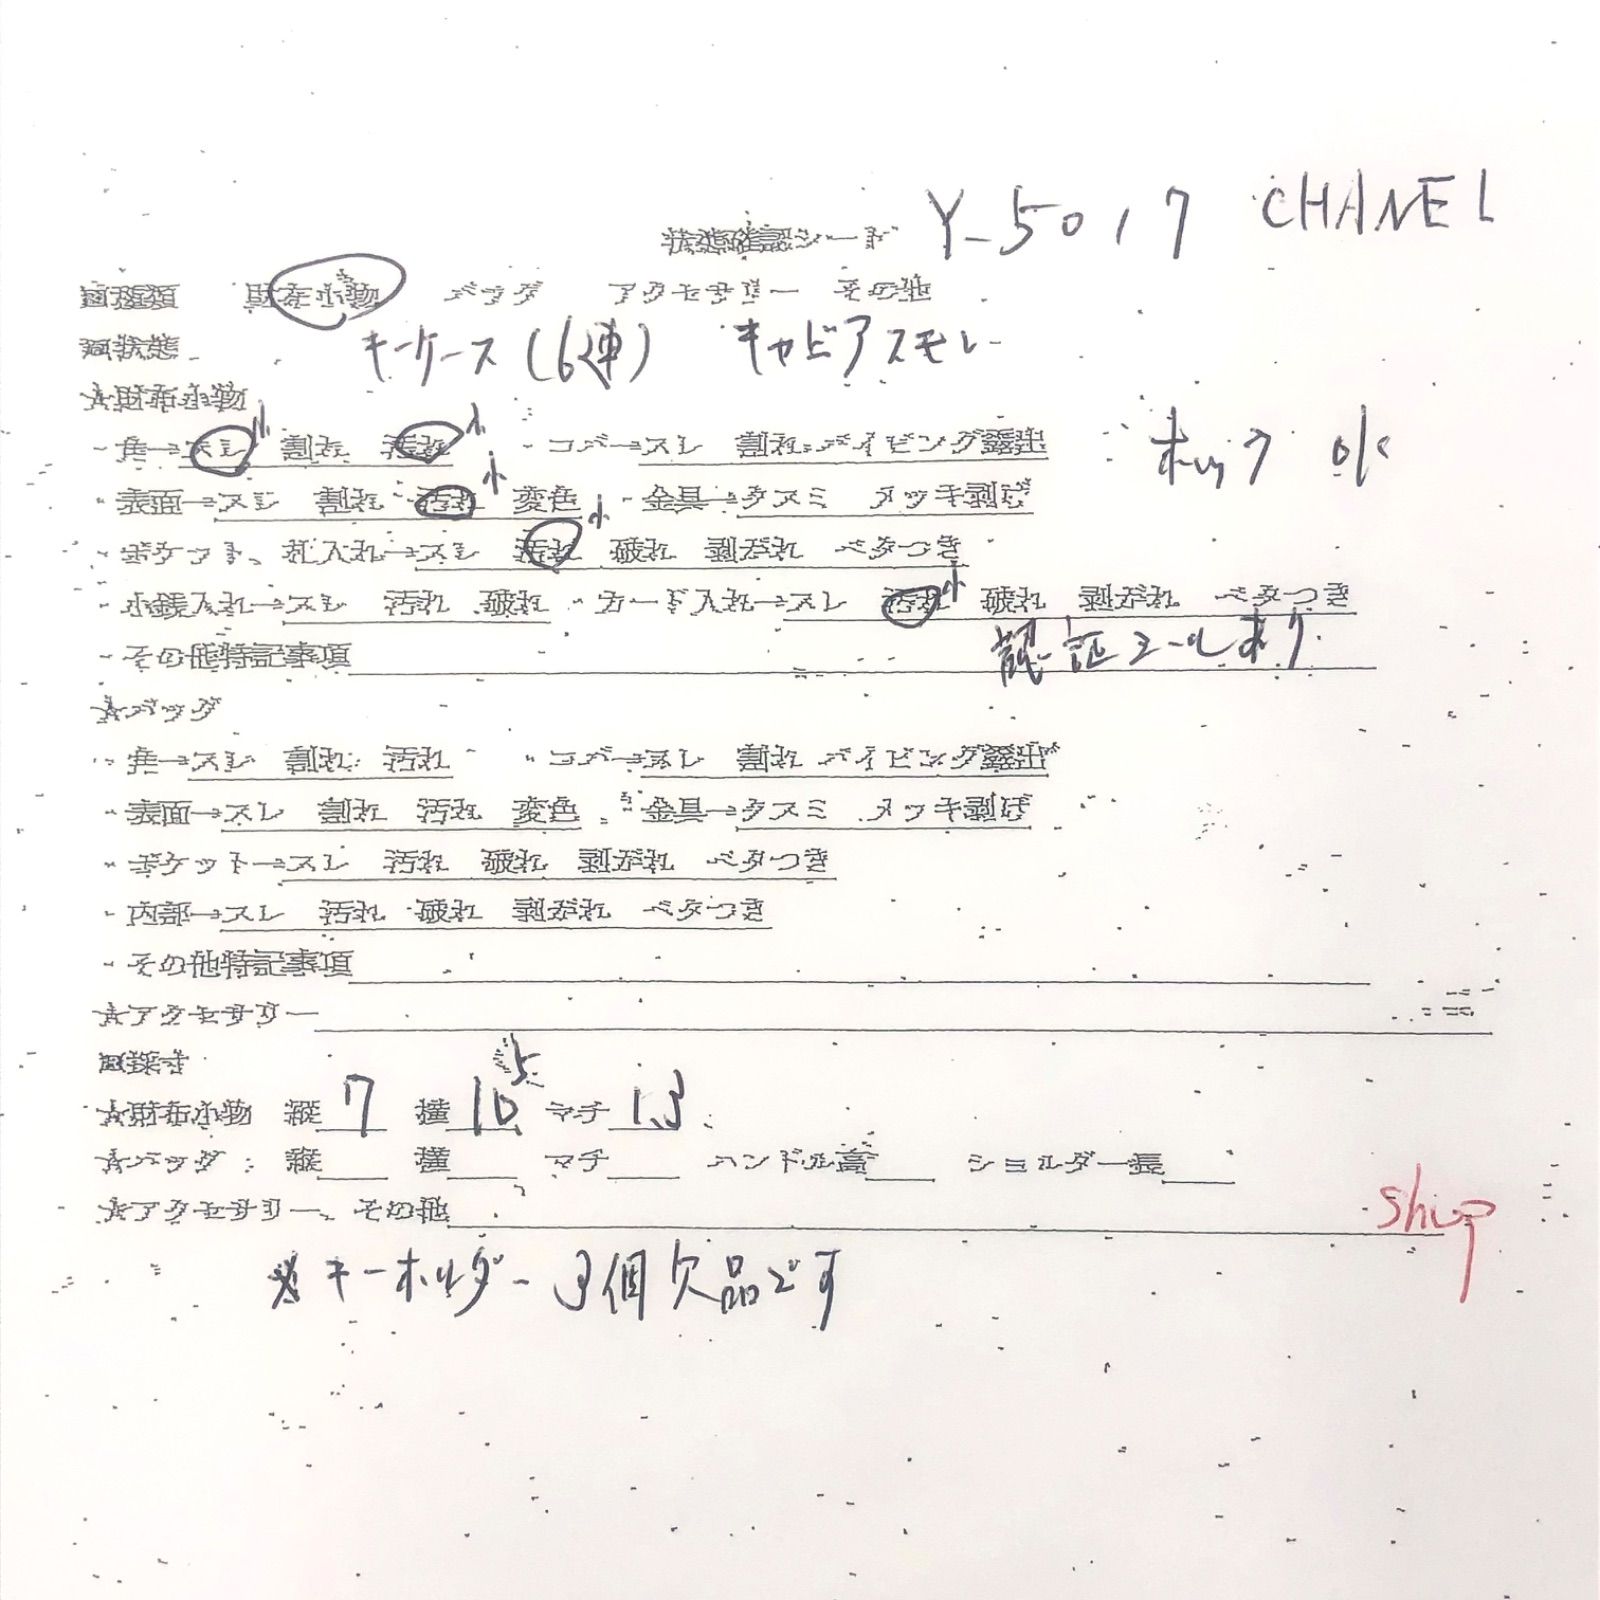 状態確認シート Y-5017 CHANEL
□種類 財布小物 バッグ アクセサリー その他
□状態 キーケース(6連) キャビアスモレ-
☆財布小物
・角→スレ小 割れ 汚れ小 ・コバ→スレ 割れ パイピング露出 ホック ok
・表面→スレ 割れ 汚れ小 変色 ・金具→クスミ メッキ剥げ
・ポケット、札入れ→スレ 汚れ小 破れ 剥がれ ベタつき
・小銭入れ→スレ 汚れ 破れ ・カード入れ→スレ 汚れ小 破れ 剥がれ ベタつき
・その他特記事項 認証シールあり.
☆バッグ
・角→スレ 割れ 汚れ ・コバ→スレ 割れ パイピング露出
・表面→スレ 割れ 汚れ 変色 ・金具→クスミ メッキ剥げ
・ポケット→スレ 汚れ 破れ 剥がれ ベタつき
・内部→スレ 汚れ 破れ 剥がれ ベタつき
・その他特記事項
☆アクセサリー
□採寸
☆財布小物 縦 7 横 10.5 マチ 1.3
☆バッグ 縦 横 マチ ハンドル高 ショルダー長
☆アクセサリー、その他 ship
※キーホルダー 3個欠品です